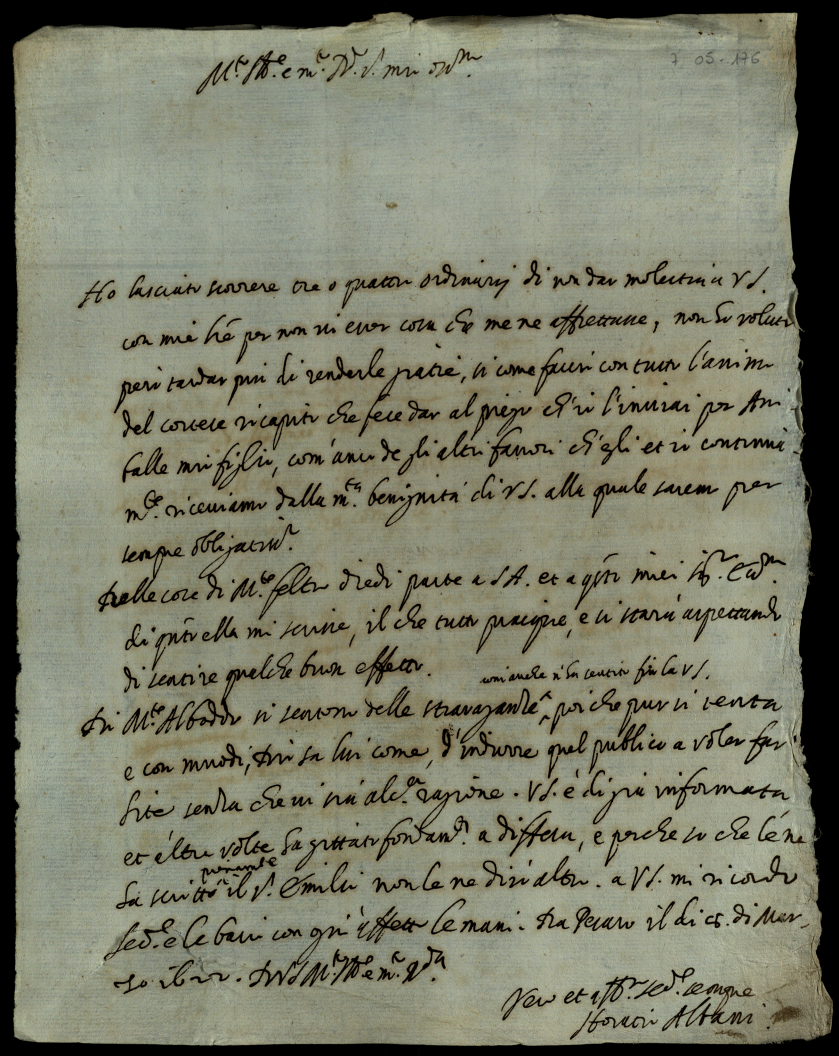 7 05. 176
M.r Ill.e e m.r P.r S.r mio oss.mo
Ho lasciato scorrere tre o quattro ordinarij di non dar molestia a VS.
con mie l're per non vi esser cosa che me ne affrettasse, non ho voluto
però tardar più di renderle gratie, si come faccio con tutto l'animo
del cortese ricapito che fece dar al piego ch'io l'inviai per Anni
balle mio figlio, com'anco de gli altri favori ch'egli et io continua
m.te riceviamo dalla m.ta benignità di VS. alla quale sarem per
sempre obligatiss.i
Delle cose di M.te feltro diedi parte a S.A. et a q'sti miei
di q'nto ella mi scrisse, il che tutto piacque, e si starà aspettando
di sentire qualche buon effetto.
com'anche n'ha sentito fin là VS.
Di M.te Abboddo si sentono delle stravaganze, poi che pur si tenta
e con modi, Dio sa lui come, d'indurre quel publico a voler far
lite senza che vi sia alc.a ragione. VS. è di già informata
et altre volte ha gittato fondam.ti a difesa, e perche so che le ne
ha scritto il S.r Emilio non le ne dirò altro. a VS. mi ricordo
ser.e e le bacio con ogni affetto le mani. Da Pesaro il dì 15. di Mar-
zo 1622. Di VS M.to Ill.e e m.to R.da
Vero et aff.mo ser.e sempre
Horatio Albani